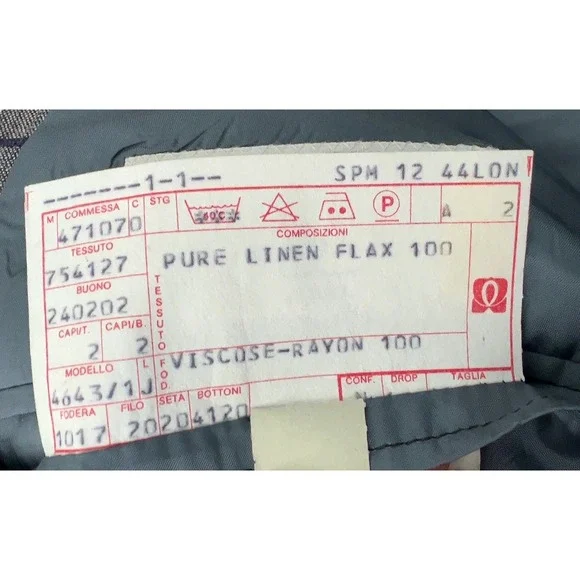 -------1-1-- SPM 12 44LON
M COMMESSA C STG
471070 60°C P A 2
TESSUTO COMPOSIZIONI
754127 TESSUTO PURE LINEN FLAX 100
BUONO
240202
CAPI/T. CAPI/B.
2 2 FOD. VISCOSE-RAYON 100
MODELLO L
4643/1J CONF. DROP TAGLIA
FODERA FILO SETA BOTTONI
1017 20204120